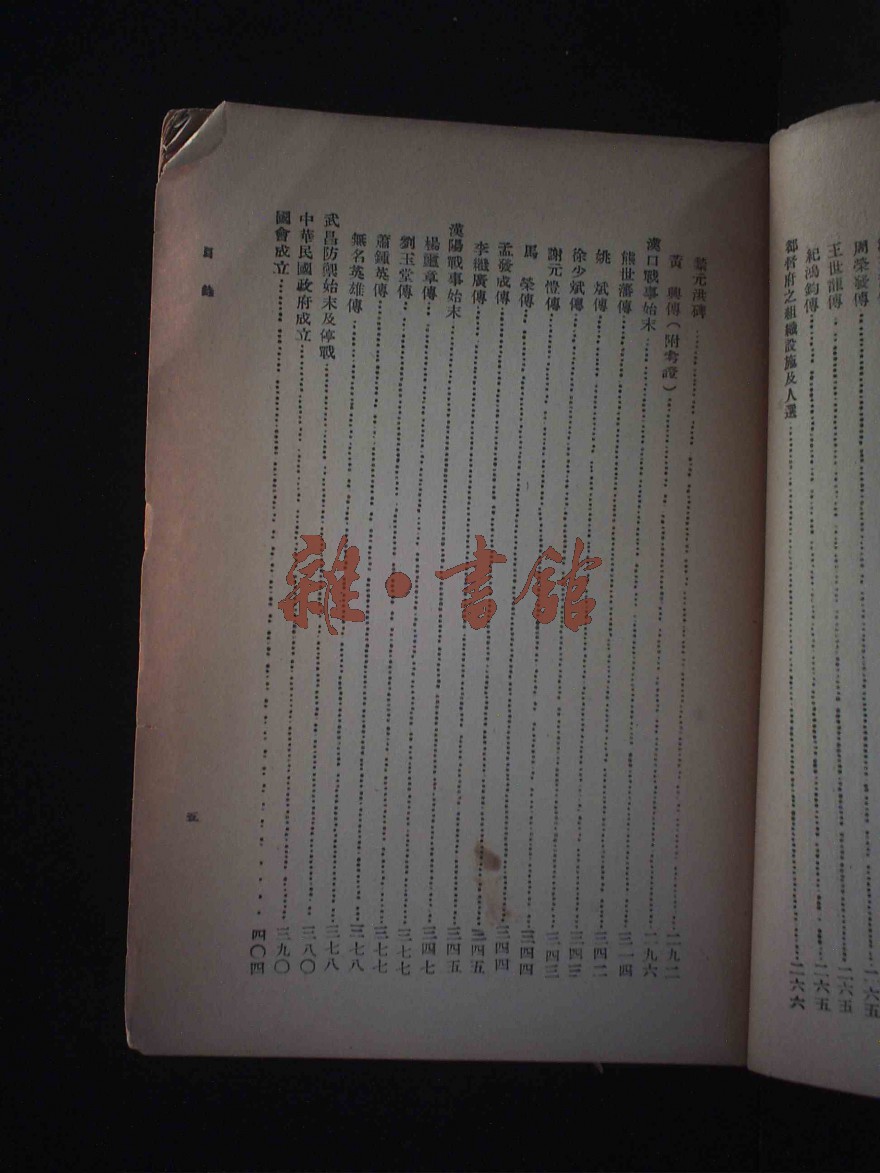 周榮發傳……二六五
王世龍傳……二六五
紀鴻鈞傳……二六五
都督府之組織設施及人選……二六六
黎元洪碑……二九二
黃 興傳(附考證)……二九六
漢口戰事始末……三一四
熊世藩傳……三四二
姚 斌傳……三四三
徐少斌傳……三四三
謝元愷傳……三四四
馬 榮傳……三四四
孟發成傳……三四五
李 廣傳……三四五
漢陽戰事始末……三四七
楊 章傳……三七七
劉玉堂傳……三七七
蕭鍾英傳……三七八
無名英雄傳……三七八
武昌防禦始末及停戰……三八〇
中華民國政府成立……三九〇
國會成立……四〇四
目錄
五
雜·書館